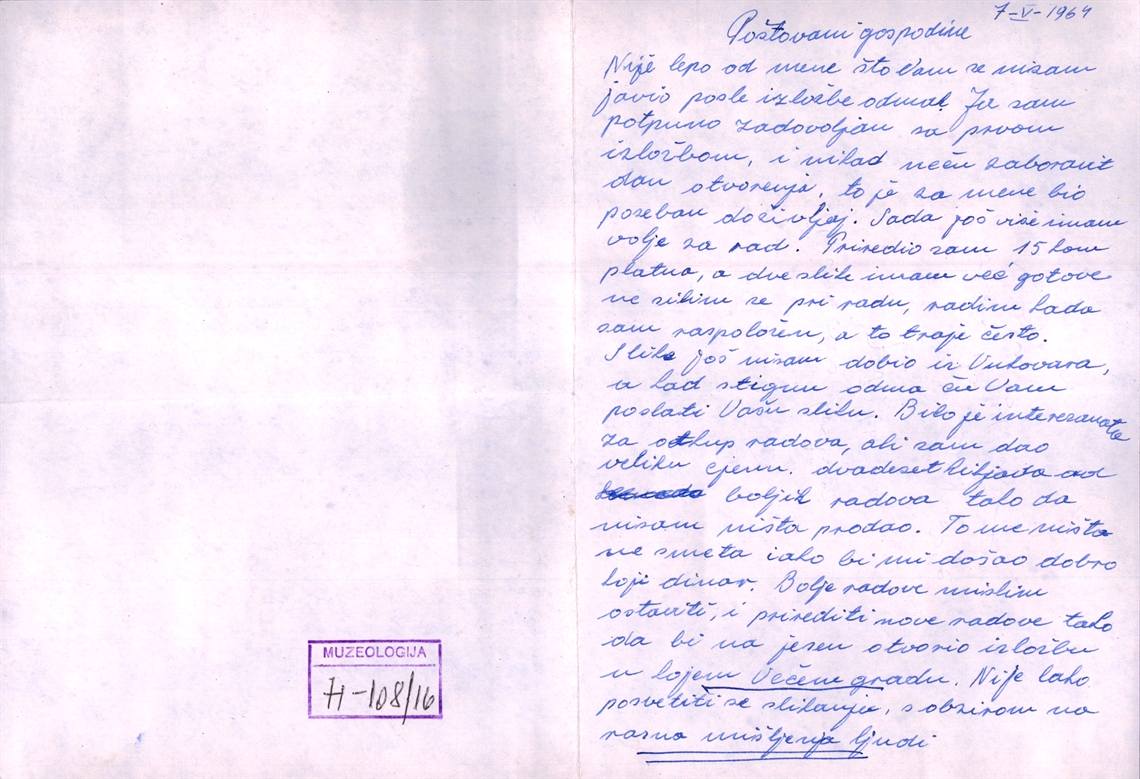 7-V-1964
Poštovani gospodine
Nije lepo od mene što Vam se nisam
javio posle izložbe odma. Ja sam
potpuno zadovoljan sa prvom
izložbom, i nikad neću zaboravit
dan otvorenja, to je za mene bio
poseban doživljaj. Sada još više imam
volje za rad. Priredio sam 15 kom
platna, a dve slike imam već gotove
ne silim se pri radu, radim kada
sam raspoložen, a to traje često.
Slike još nisam dobio iz Vukovara,
a kad stignu odma ću Vam
poslati Vašu sliku. Bilo je interesanata
za otkup radova, ali sam dao
veliku cjenu. dvadeset hiljada od
boljih radova tako da
nisam ništa prodao. To me ništa
ne smeta iako bi mi došao dobro
koji dinar. Bolje radove mislim
ostaviti, i prirediti nove radove tako
da bi na jesen otvorio izložbu
u kojem Većem gradu. Nije lako
posvetiti se slikanju, s obzirom na
razna mišljenja ljudi
MUZEOLOGIJA
H-108/16